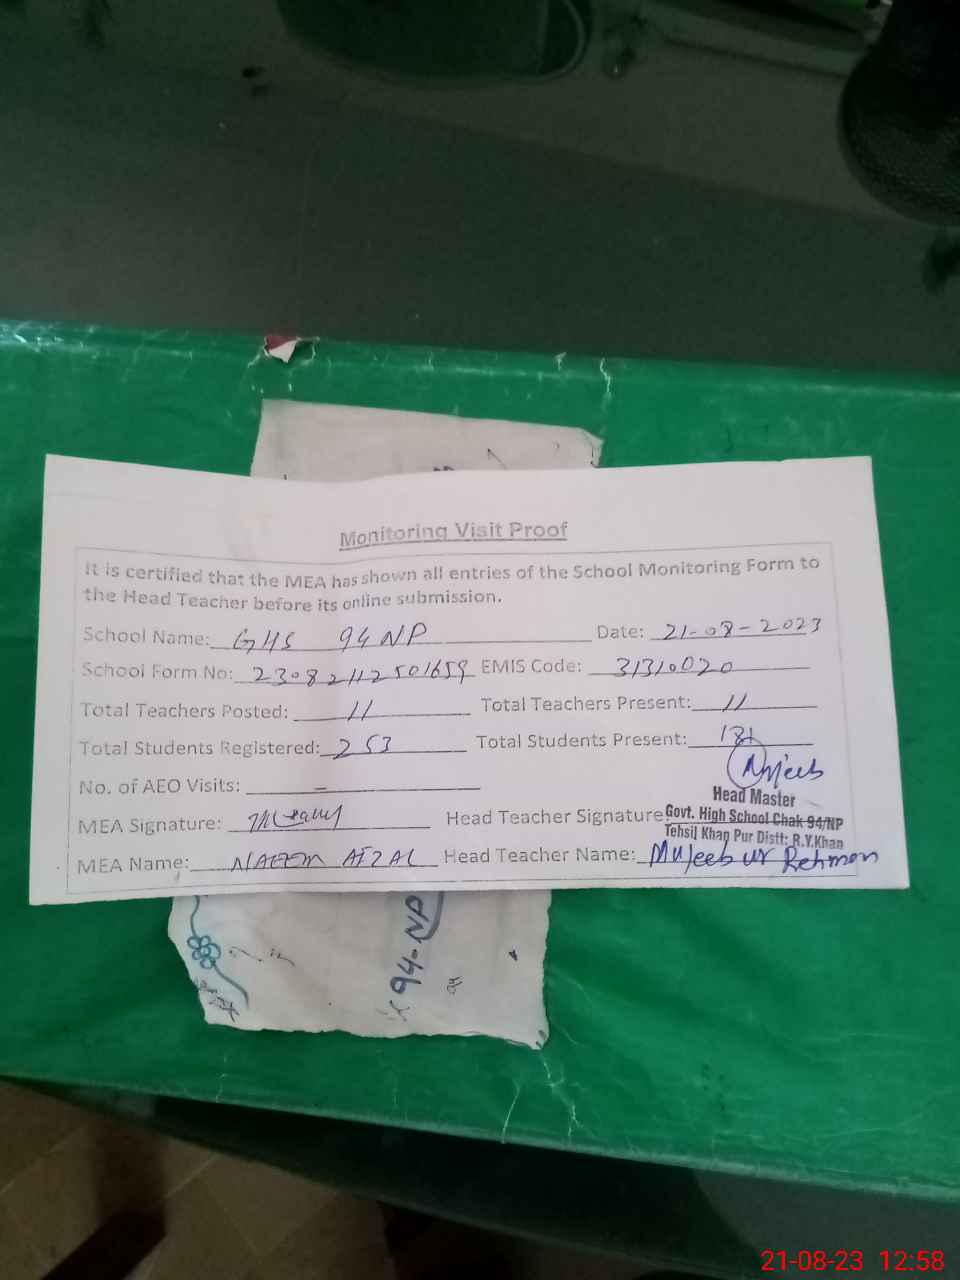 Monitoring Visit Proof
It is certified that the MEA has shown all entries of the School Monitoring Form to
the Head Teacher before its online submission.
School Name: GHS 94 NP Date: 21-08-2023
School Form No: 23082112501659 EMIS Code: 31310020
Total Teachers Posted: 11 Total Teachers Present: 11
Total Students Registered: 253 Total Students Present: 181
No. of AEO Visits: -
Mujeeb
Head Master
MEA Signature: Head Teacher Signature: Govt. High School Chak 94/NP
Tehsil Khan Pur Distt: R.Y.Khan
MEA Name: NAEEM AFZAL Head Teacher Name: Mujeeb ur Rehman
94-NP
94
21-08-23 12:58